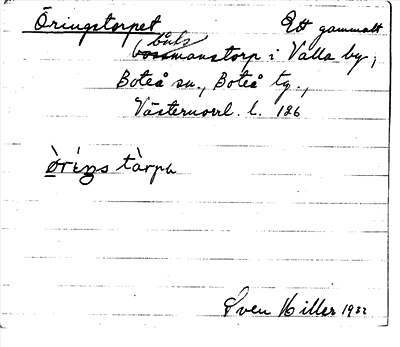 Öringstorpet Ett gammalt
båtsmanstorp i Valla by,
Boteå sn., Boteå tg.,
Västernorrl. l. 126
òríŋs tàrpə
Sven Hiller 1932